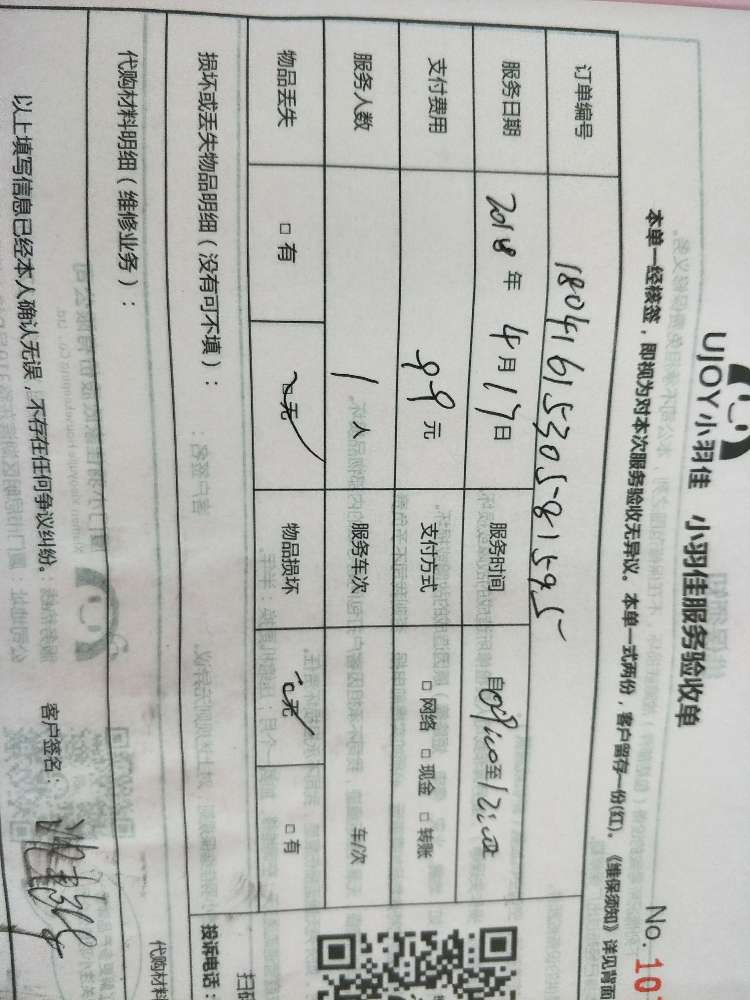 UJOY小羽佳 小羽佳服务验收单
No. 10
本单一经核签，即视为对本次服务验收无异议。本单一式两份，客户留存一份(红)。《维保须知》详见背面
订单编号 1804161530581595
服务日期 2018年4月17日 服务时间 自09:00至12:00
支付费用 99元 支付方式 □网络 □现金 □转账
服务人数 1人 服务车次 车/次
物品丢失 □有 □无 物品损坏 □无 □有
损坏或丢失物品明细（没有可不填）：
投诉电话：
扫码
代购材料明细（维修业务）：
代购材料
以上填写信息已经本人确认无误，不存在任何争议纠纷。 客户签名：